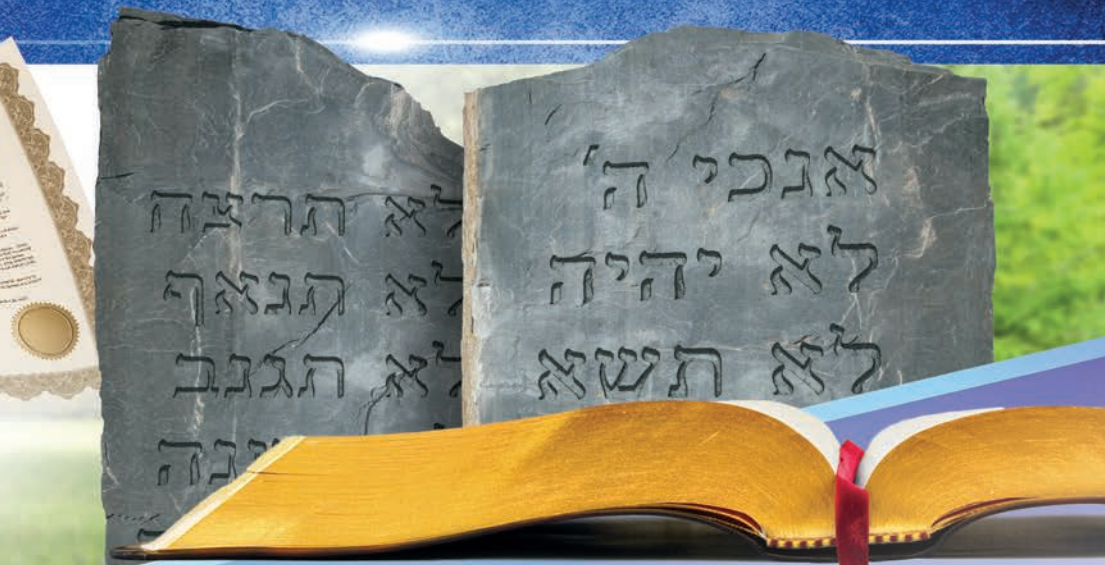 אנכי ה'
לא יהיה
לא תשא
לא תרצח
לא תנאף
לא תגנב